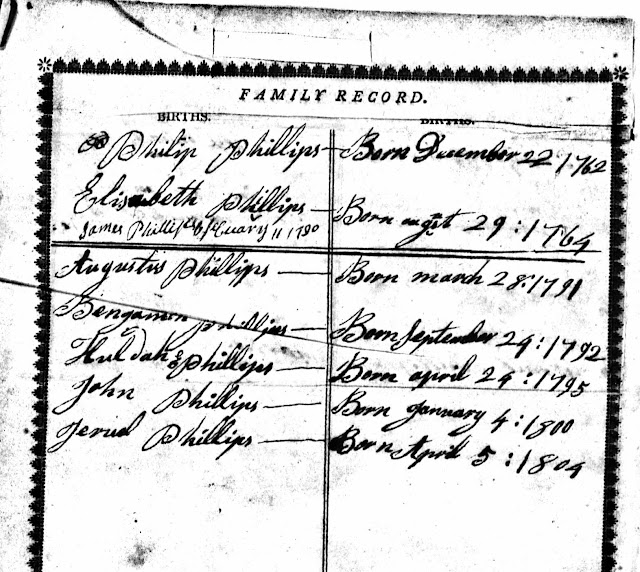 FAMILY RECORD.
BIRTHS. BIRTHS.
Philip Phillips Born December 22 1762
Elisabeth Phillips Born augst 29 : 1764
James Phillips 11 1790
Augustis Phillips Born march 28 : 1791
Bengamin Phillips Born September 24 : 1792
Huldah Phillips Born april 24 : 1795
John Phillips Born January 4 : 1800
Jerud Phillips Born April 5 : 1804